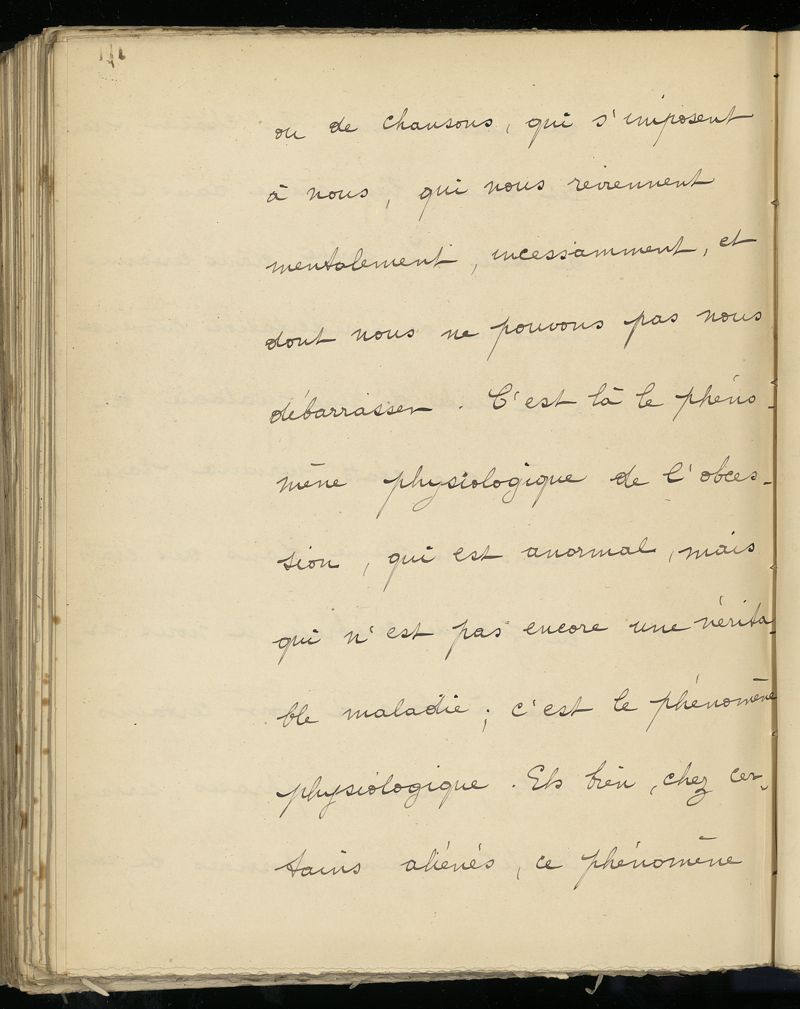 ou de chansons, qui s'imposent
à nous, qui nous reviennent
mentalement, incessamment, et
dont nous ne pouvons pas nous
débarrasser. C'est là le phéno-
mène physiologique de l'obces-
sion, qui est anormal, mais
qui n'est pas encore une vérita-
ble maladie; c'est le phénomène
physiologique. Eh bien, chez cer-
tains aliénés, ce phénomène